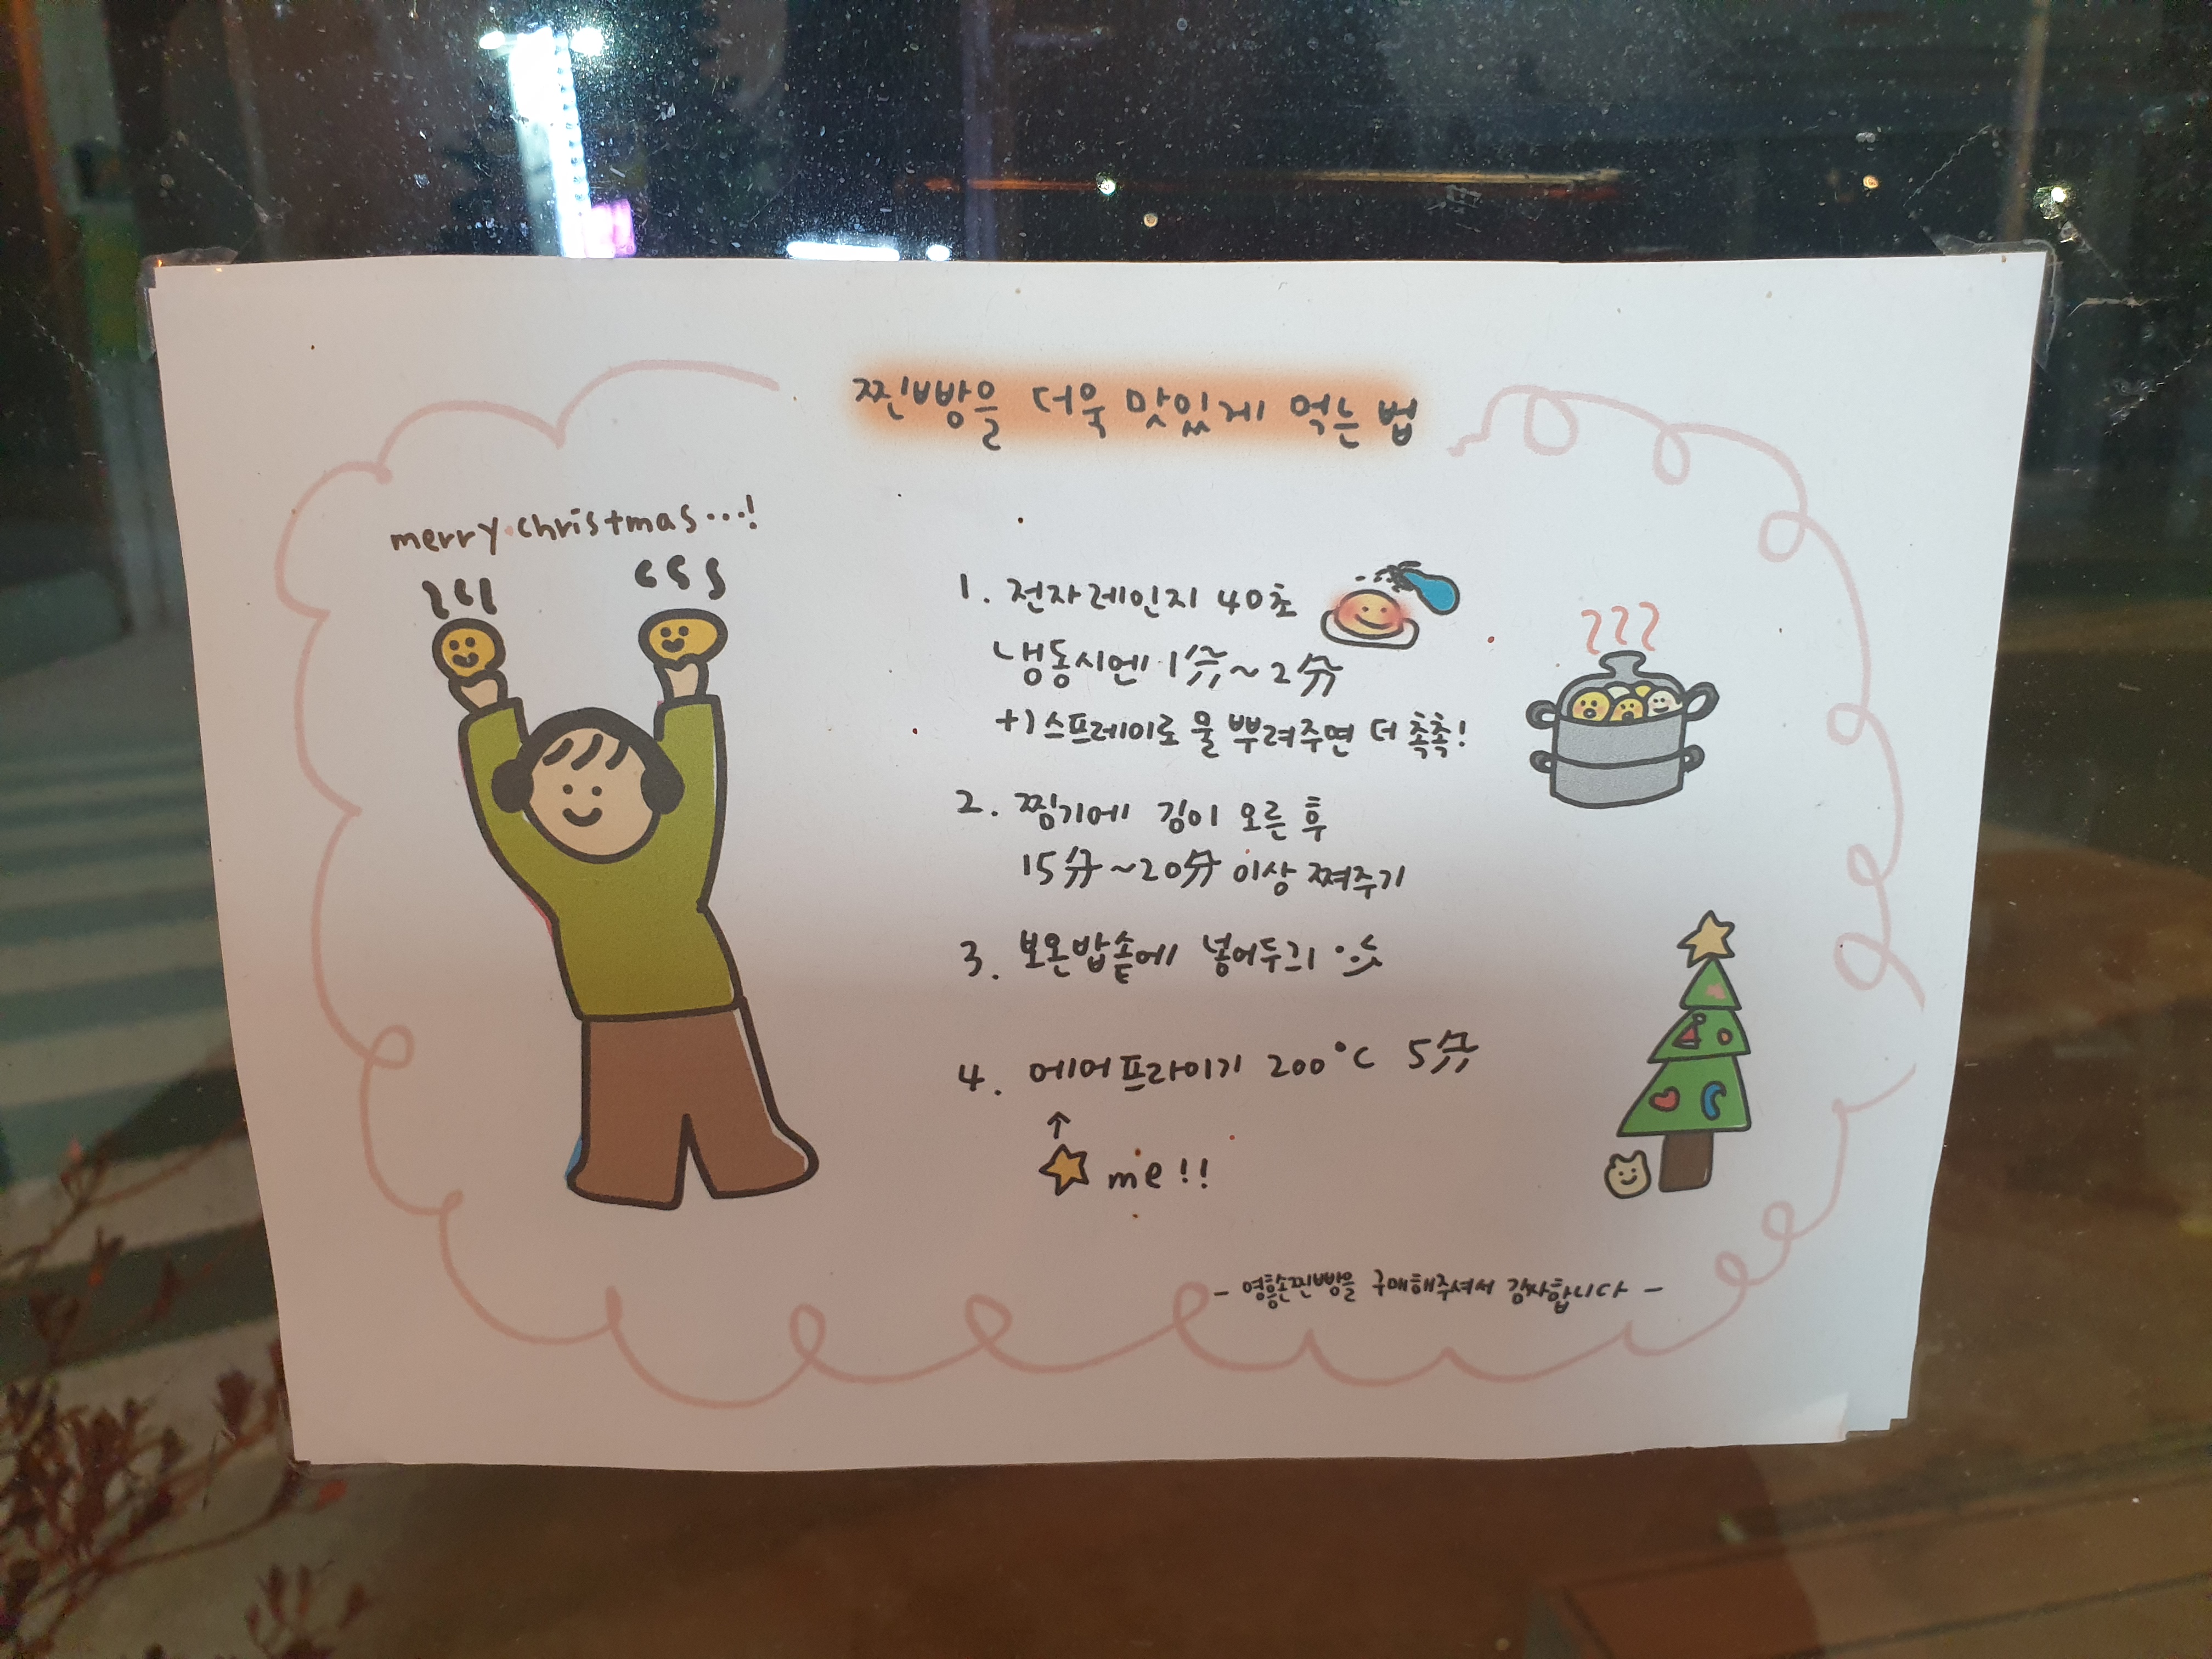 찐빵을 더욱 맛있게 먹는 법
merry christmas...!
1. 전자레인지 40초
냉동시엔 1分~2分
+) 스프레이로 물 뿌려주면 더 촉촉!
2. 찜기에 김이 오른 후
15分~20分 이상 쪄주기
3. 보온밥솥에 넣어두기
4. 에어프라이기 200°C 5分
↑
☆ me!!
- 영흥손찐빵을 구매해주셔서 감사합니다 -